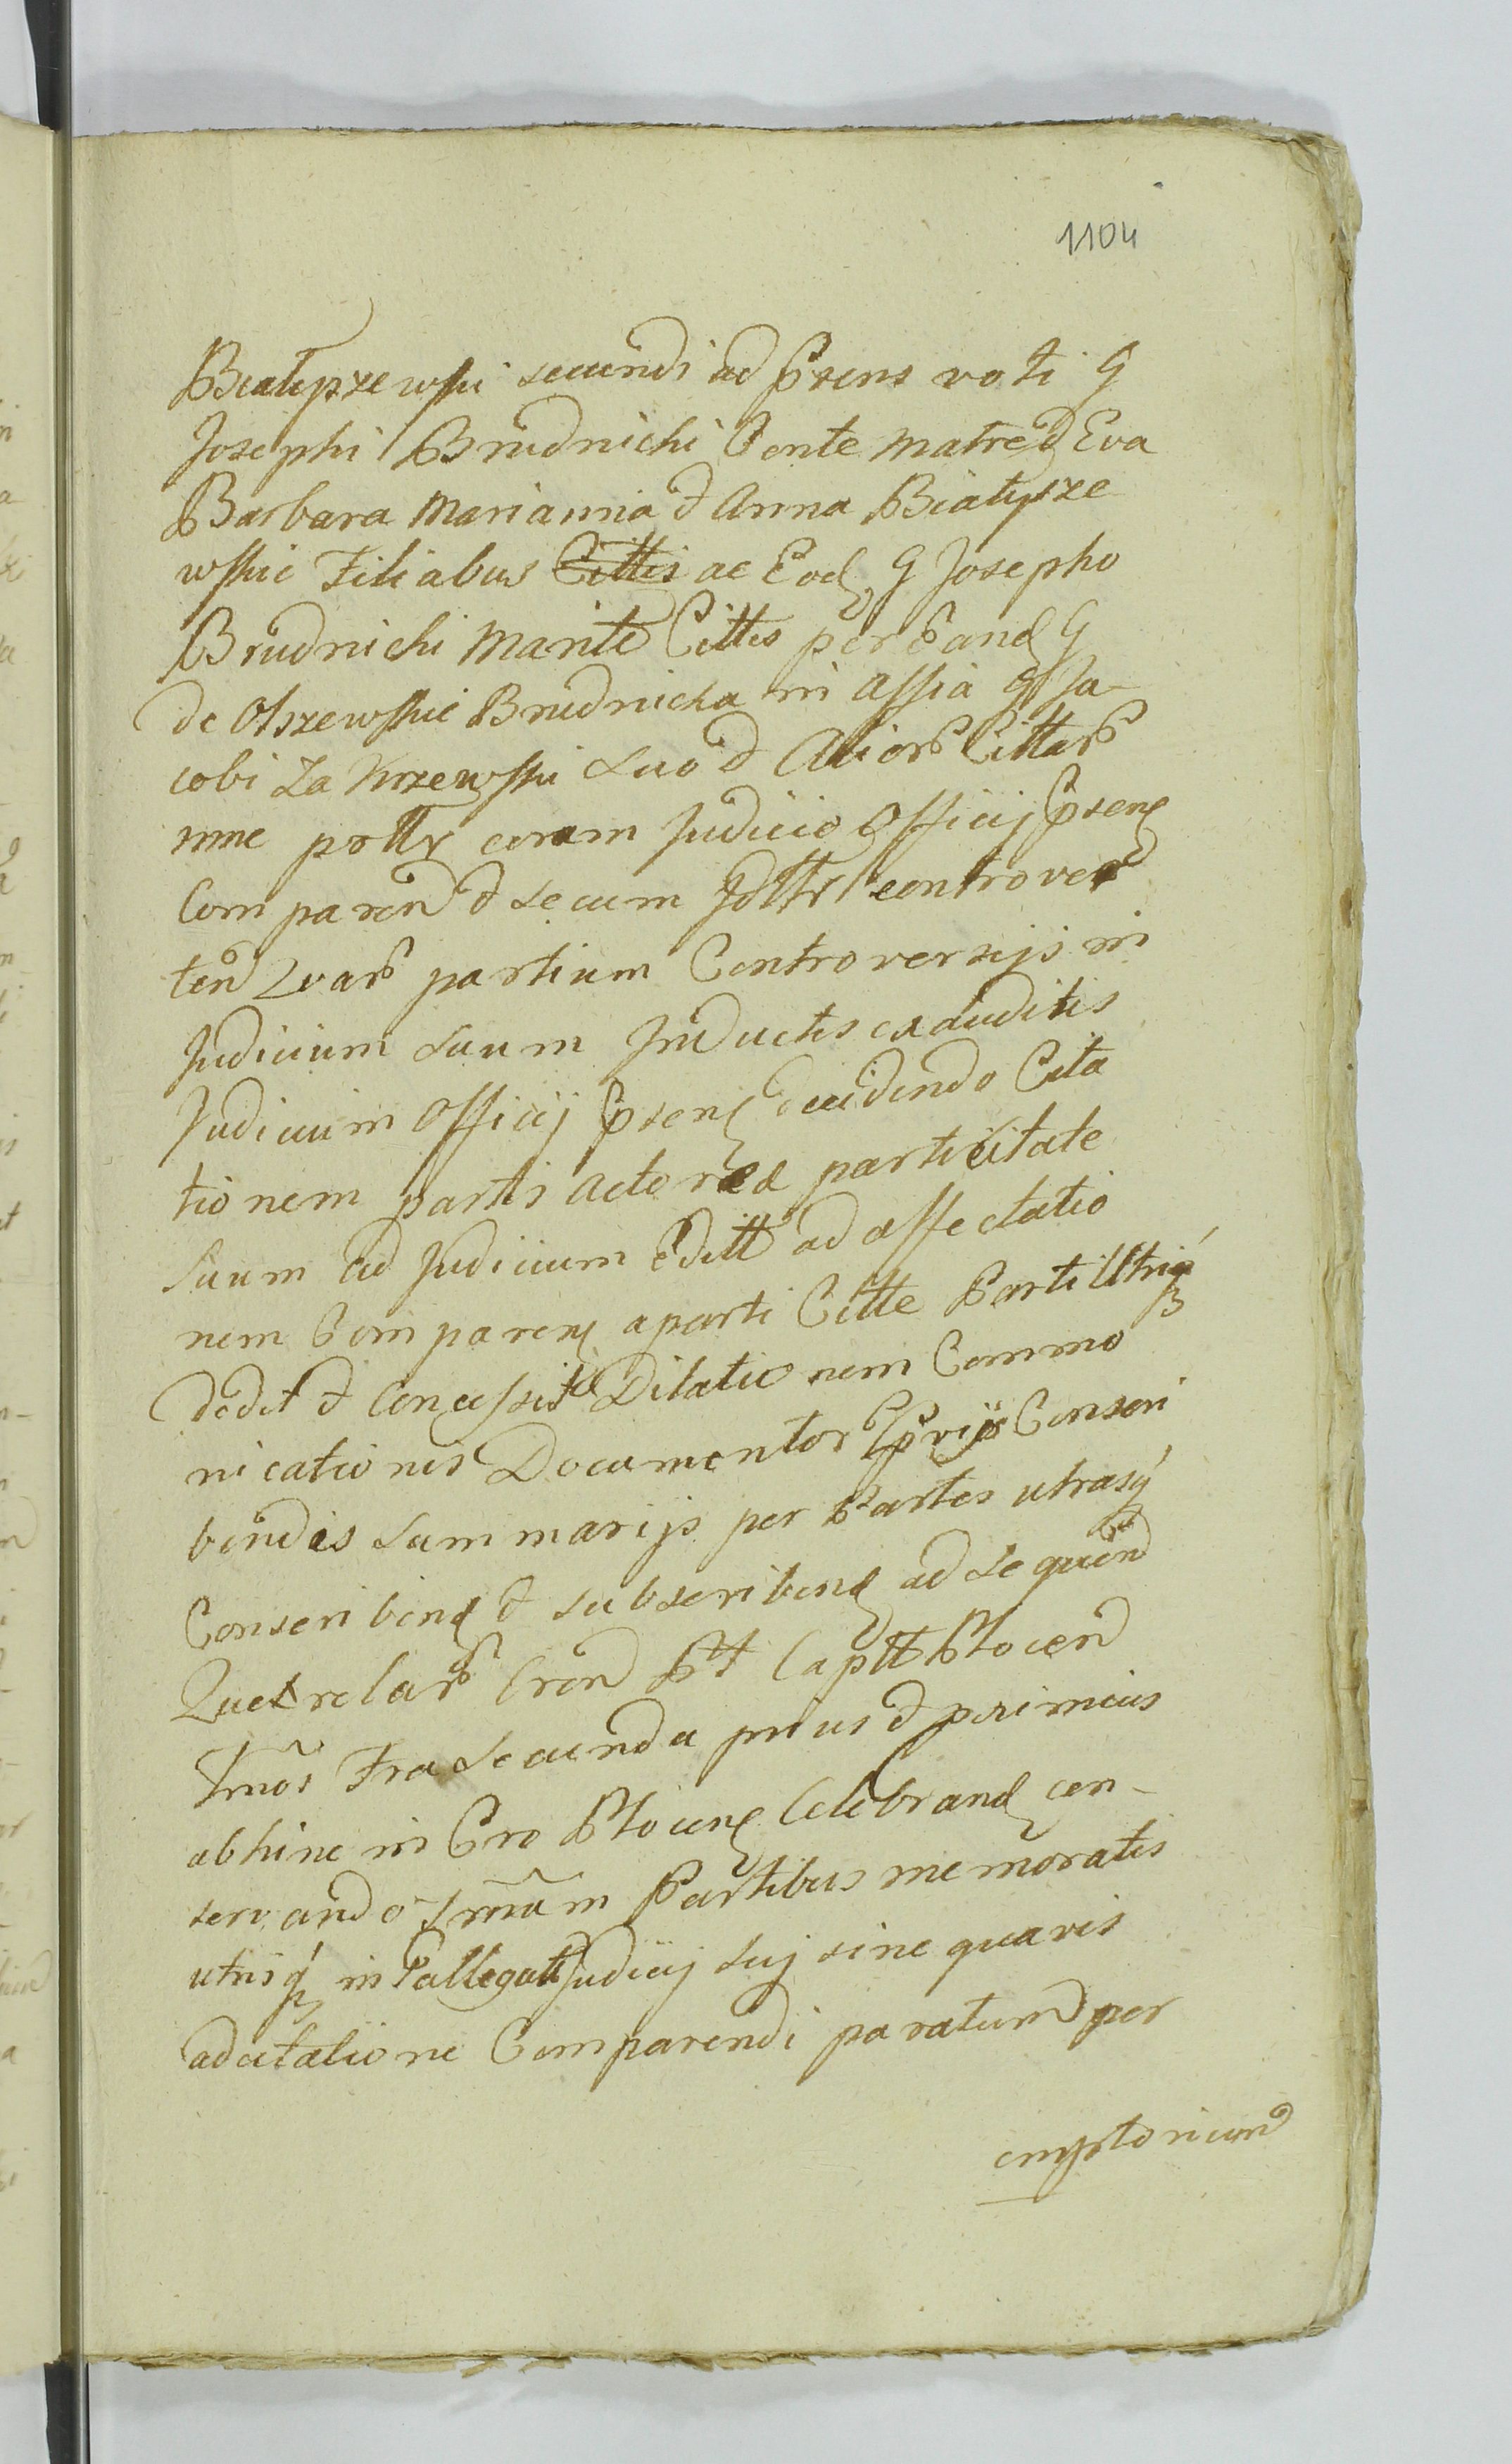 1104
Białyszewski secundi ad Prens voti G
Josephi Brudnicki Conte Matre & Eva
Barbara Marianna & Anna Białysze
wskie Filiabus Cittis ac Eod G Josepho
Brudnicki Marito Cittis per Eand G
de Olszewskie Brudnicka in Assia G Ja-
cobi Zakrzewski suo & Alior Cittar
nme psttr coram Judicio Officij Psens
Comparen & secum Jdttr controver
ten Quar partium Controversijs in
Judicium suum Inductis exauditis
Judicium Officij Psens decidendo Cita
tionem partis Actorea parti Citatae
suum ad Judicium Editt ad affectatio
nem Comparens a parti Citte Parti Utriq
dedit & concessit Dilationem Commo
nicationis Documentor Pprijs Conscri
bendis Summarijs per Partes utrasq
Conscribend & subscribend ad sequen
Querelar Cren Ptt Captt Plocen
Trmos Fra Secunda prius & perimcius
abhinc in Cro Plocens Celebrand con-
servando Trmum Partibus memoratis
utrisq in Pallegatt Judicij suj sine quavis
adcitatione Comparendi paratum per
emptorium